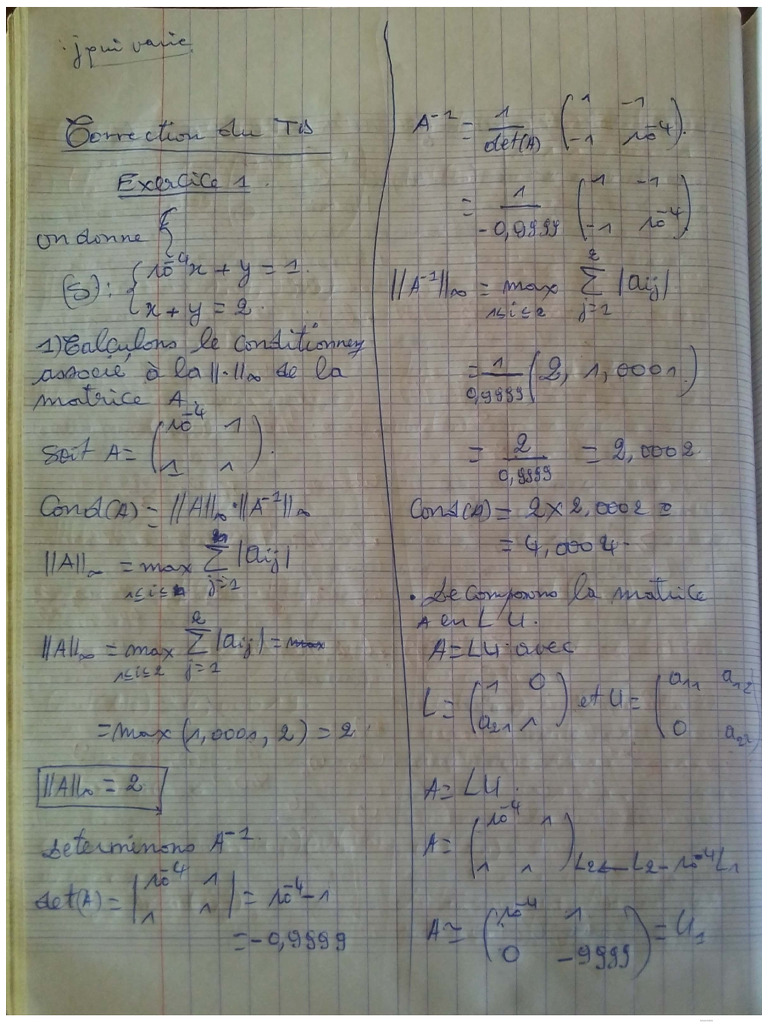 : j pui varie
Correction du TD
Exercice 1.
on donne {
(S): { 10^-4 x + y = 1.
x + y = 2
1) Calculons le conditionney
associé à la ||·||∞ de la
matrice A.
Soit A = ( 10^-4 1
1 1 ).
Cond(A) = ||A||∞ · ||A^-1||∞
||A||∞ = max Σ |aij|
1≤i≤n j=1
||A||∞ = max Σ |aij| =
1≤i≤2 j=1 2
= max (1,0001, 2) = 2.
||A||∞ = 2
Determinons A^-1.
det(A) = | 10^-4 1
1 1 | = 10^-4 - 1
= -0,9999
A^-1 = 1/det(A) ( 1 -1
-1 10^-4 ).
= 1/-0,9999 ( 1 -1
-1 10^-4 )
||A^-1||∞ = max Σ |aij|
1≤i≤2 j=1 2
= 1/0,9999 ( 2, 1,0001.)
= 2/0,9999 = 2,0002.
Cond(A) = 2 x 2,0002 =
= 4,0004.
• Decomposons la matrice
A en L U.
A = LU avec
L = ( 1 0
a21 1 ) et U = ( a11 a12
0 a22
A = LU.
A = ( 10^-4 1
1 1 ) L2 ← L2 - 10^-4 L1
A ≃ ( 10^-4 1
0 -9999 ) = U1